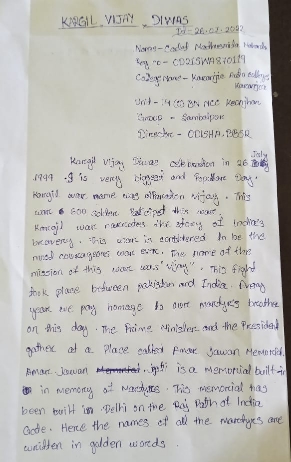 KARGIL VIJAY DIWAS
Dt - 26.07.2022
Name - Cadet Madhusmita
Reg no - OD21SWA870119
College Name - Karanjia
Karanjia
Unit - 14 (O) BN NCC Keonjhar
Group - Sambalpur
Directer - ODISHA, BBSR
Kargil Vijay Diwas celebration in 26 July
1999. It is very biggest and Day.
Kargil war name was vijay. This
war 600 this war.
Kargil war narrates the story of India's
bravery. This war is considered to be the
most courageous war ever. The name of the
mission of this war was "vijay". This fight
took place between pakistan and India. Every
year we pay homage to our martyrs brother
on this day. The Prime Minister and the President
gather at a Place called Amar Jawan Memorial.
Amar Jawan Jyoti is a Memorial built in
in memory of Martyres. This memorial has
been built in Delhi on the Raj Path of India
Gate. Here the names of all the martyres are
written in golden words.